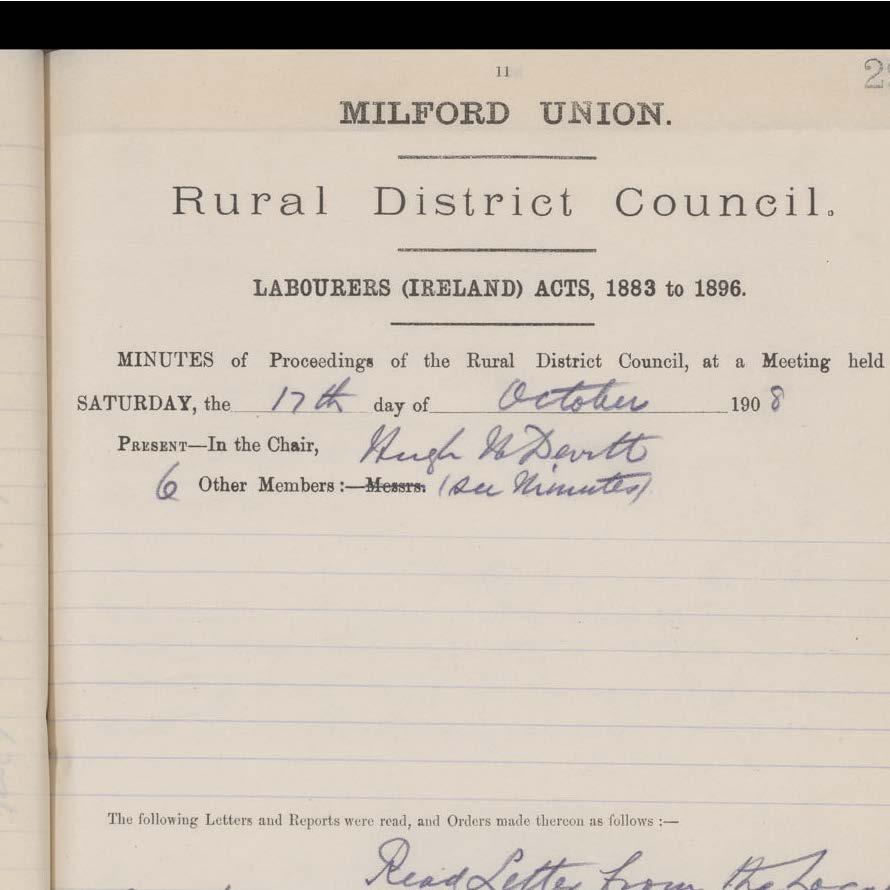 11
MILFORD UNION.
Rural District Council.
LABOURERS (IRELAND) ACTS, 1883 to 1896.
MINUTES of Proceedings of the Rural District Council, at a Meeting held
SATURDAY, the 17th day of October 1908
PRESENT—In the Chair, Hugh McDevitt
6 Other Members:—Messrs. (see Minutes)
The following Letters and Reports were read, and Orders made thereon as follows:—
Read Letter from the